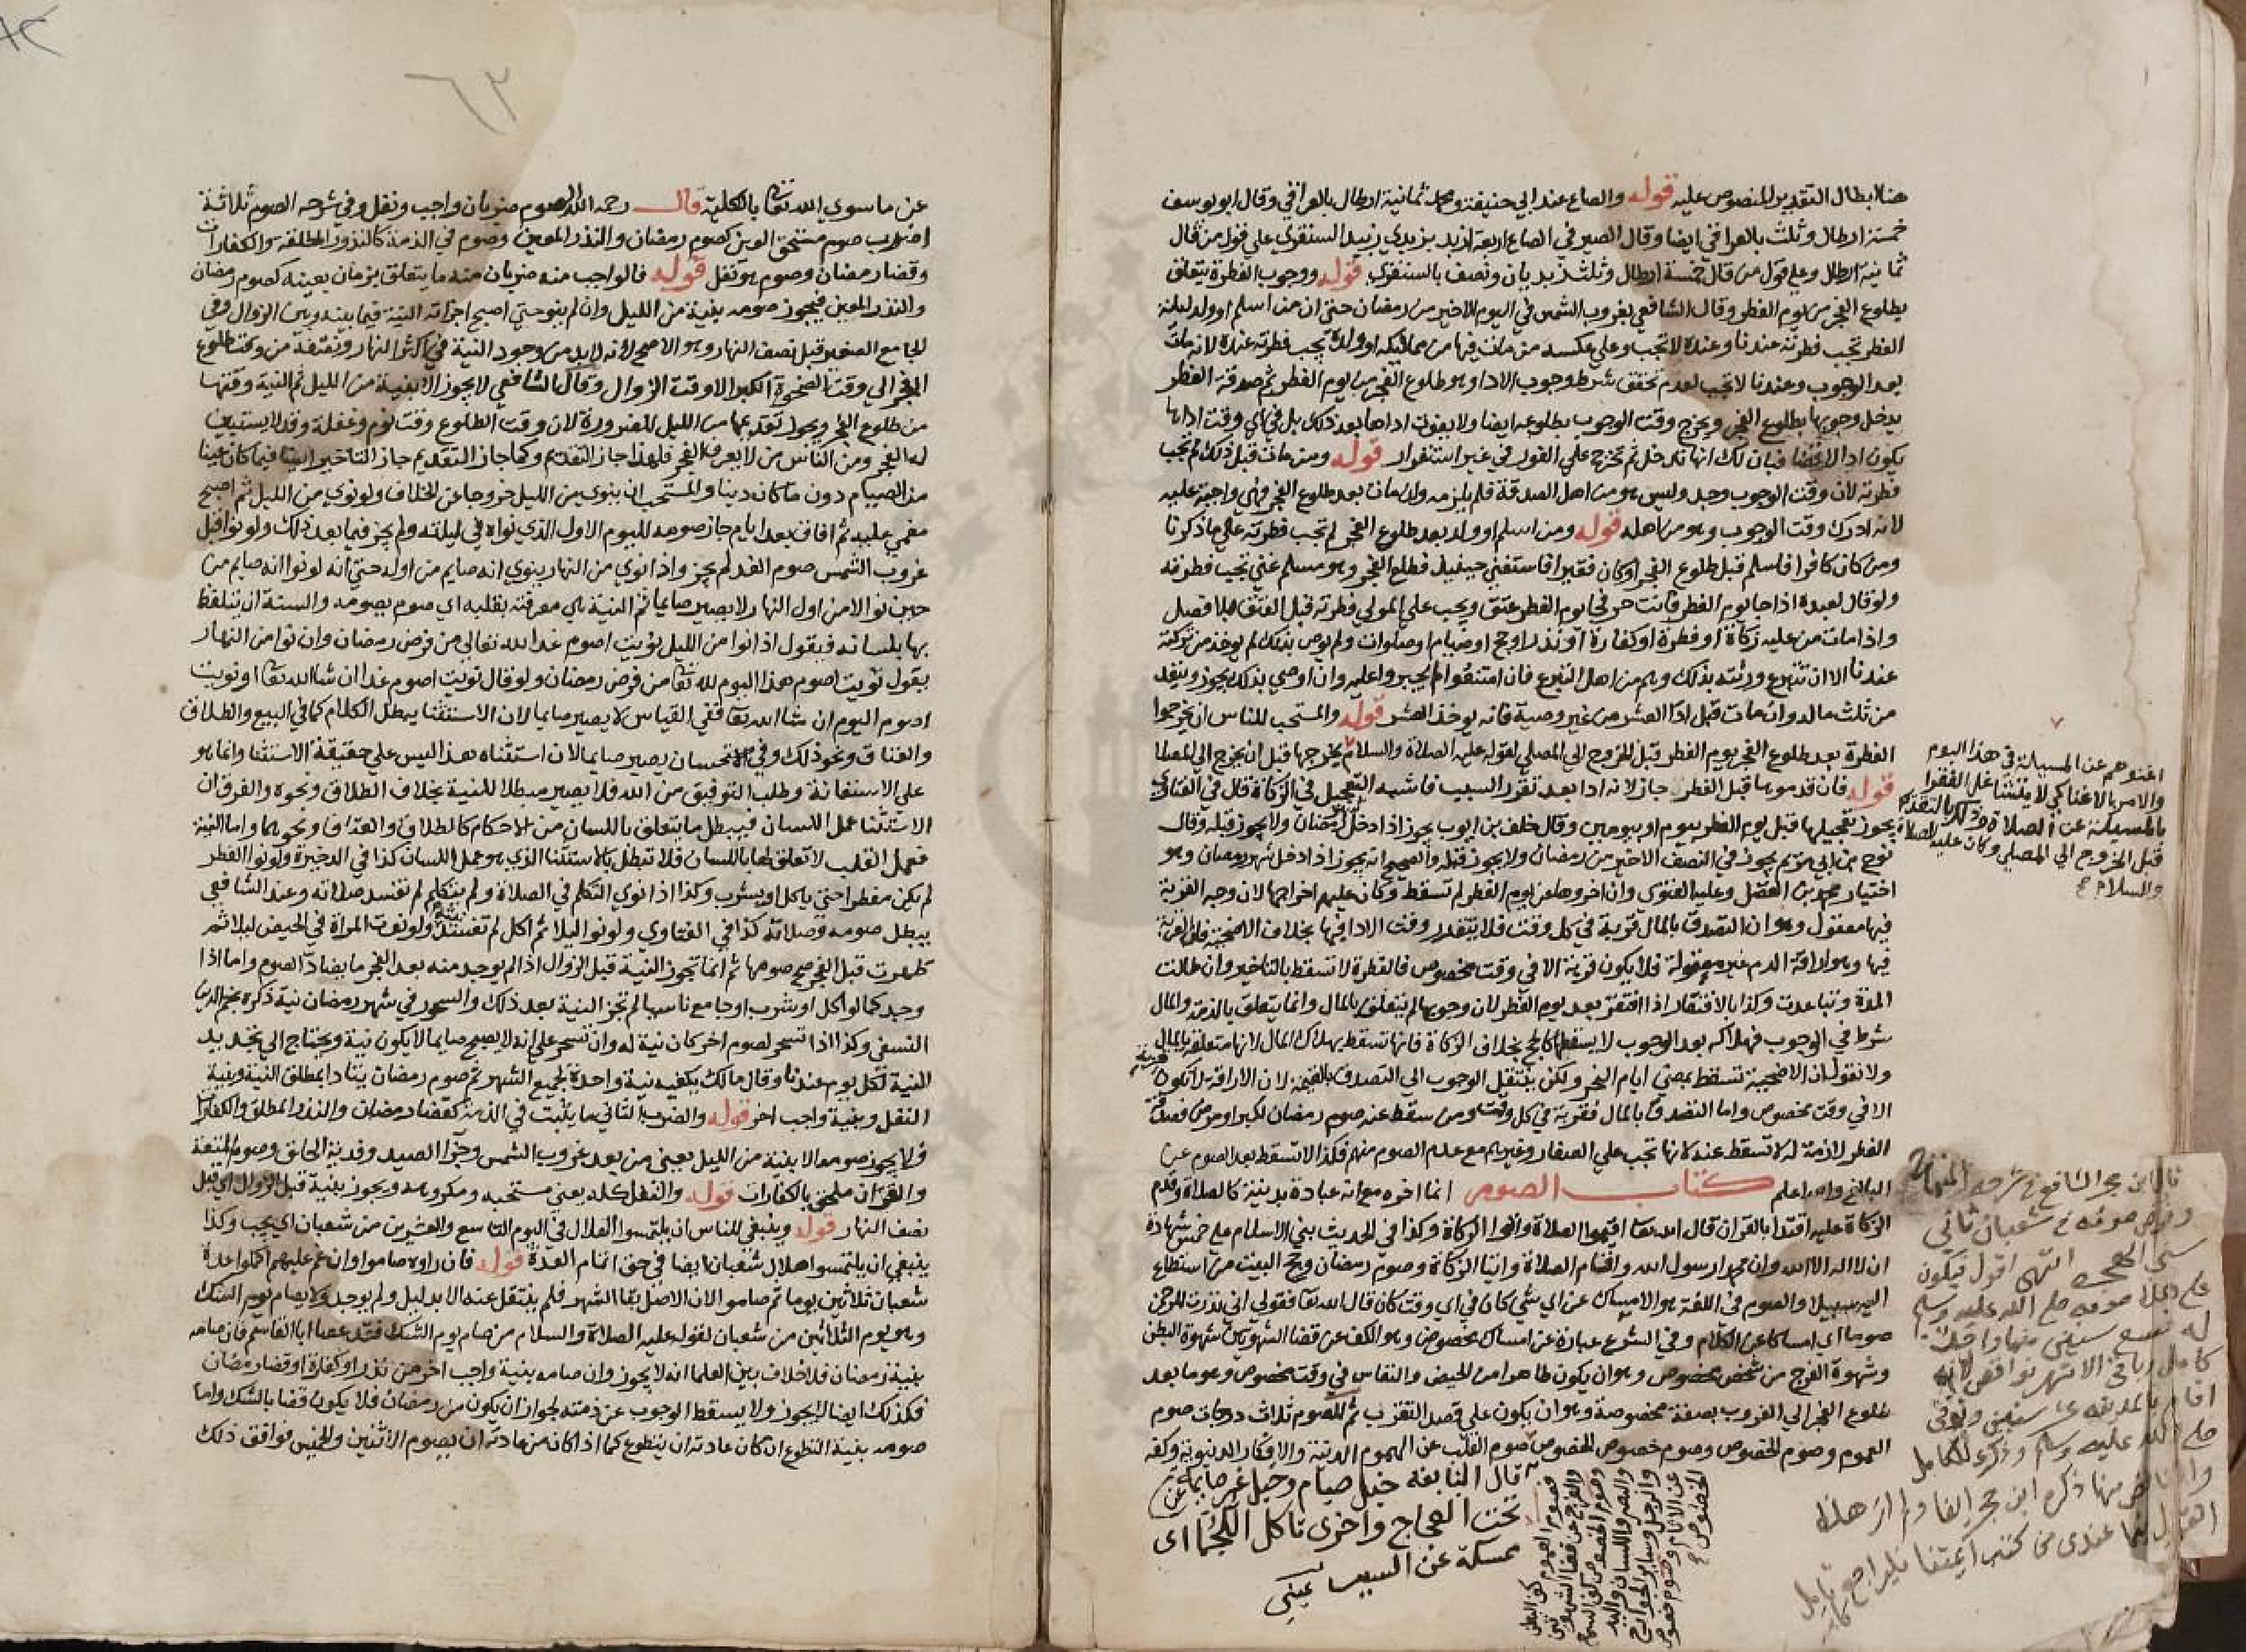 هنا ابطال التقدير المنصوص عليه قوله والصاع عند ابي حنيفة ومحمد ثمانية ارطال بالعراقي وقال ابو يوسف
خمسة ارطال وثلث بالعراقي ايضا وقال الصيرفي الصاع اربعة ازبد بزبدي زبيد السنقري علي قول من قال
ثمانية ارطال وعلي قول من قال خمسة ارطال وثلث زبديان ونصف بالسنقري قوله ووجوب الفطرة يتعلق
بطلوع الفجر من يوم الفطر وقال الشافعي بغروب الشمس في اليوم الاخير من رمضان حتي ان من اسلم او ولد ليلة
الفطر تجب فطرته عندنا وعنده لا تجب وعلي عكسه من مات فيها من مماليكه او ولده تجب فطرته عنده لانه مات
بعد الوجوب وعندنا لا تجب لعدم تحقق شرط وجوب الادا وهو طلوع الفجر من يوم الفطر ثم صدقة الفطر
يدخل وجوبها بطلوع الفجر ويخرج وقت الوجوب بطلوعه ايضا ولا يفوت اداها بعد ذلك بل في اي وقت اداها
يكون ادا لا قضا فبان لك انها تدخل ثم تخرج علي الفور في غير استقرار قوله ومن مات قبل ذلك لم تجب
فطرته لان وقت الوجوب وجد وليس هو من اهل الصدقة فلم يلزمه وان مات بعد طلوع الفجر فهي واجبة عليه
لانه ادرك وقت الوجوب وهو من اهله قوله ومن اسلم او ولد بعد طلوع الفجر لم تجب فطرته علي ما ذكرنا
ومن كان كافرا فاسلم قبل طلوع الفجر او كان فقيرا فاستغني حينيذ فطلع الفجر وهو مسلم غني تجب فطرته
ولو قال لعبده اذا جا يوم الفطر فانت حر فجا يوم الفطر عتق ويجب علي المولي فطرته قبل العتق بلا فصل
واذا مات من عليه زكاة او فطرة او كفارة او نذر او حج او صيام او صلوات ولم يوص بذلك لم يوخذ من تركته
عندنا الا ان تتبرع ورثته بذلك وهم من اهل التبرع فان امتنعوا لم يجبروا عليه وان اوصي بذلك يجوز وينفذ
من ثلث ماله وان مات قبل ادا العشر من غير وصية فانه يوخذ العشر قوله والمستحب للناس ان يخرجوا
الفطرة بعد طلوع الفجر يوم الفطر قبل الخروج الي المصلي لقوله عليه الصلاة والسلام يخرجها قبل ان يخرج الي المصلا
قوله فان قدموها قبل الفطر جاز لانه ادا بعد تقرر السبب فاشبه التعجيل في الزكاة قال في الفتاوي
يجوز تعجيلها قبل يوم الفطر بيوم او يومين وقال خلف بن ايوب يجوز اذا دخل رمضان ولا يجوز قبله وقال
نوح بن ابي مريم يجوز في النصف الاخير من رمضان ولا يجوز قبله والصحيح انه يجوز اذا دخل شهر رمضان وهو
اختيار محمد بن الفضل وعليه الفتوي وان اخروها عن يوم الفطر لم تسقط وكان عليهم اخراجها لان وجه القربة
فيها معقول وهو ان التصدق بالمال قربة في كل وقت فلا يتقدر وقت الادا فيها بخلاف الاضحية فان القربة
فيها وهو اراقة الدم غير معقولة فلا يكون قربة الا في وقت مخصوص فالفطرة لا تسقط بالتاخير وان طالت
المدة وتباعدت وكذا بالافتقار اذا افتقر بعد يوم الفطر لان وجوبها لم يتعلق بالمال وانما يتعلق بالذمة والمال
شرط في الوجوب فهلاكه بعد الوجوب لا يسقطها كالحج بخلاف الزكاة فانها تسقط بهلاك المال لانها متعلقة بالمال
ولا نقول ان الاضحية تسقط بمضي ايام النحر ولكن ينتقل الوجوب الي التصدق بالقيمة لان الاراقة لا تكون قربة
الا في وقت مخصوص واما التصدق بالمال فقربة في كل وقت ومن سقط عنه صوم رمضان لكبر او مرض فصدقة
الفطر لازمة له لا تسقط عنه لانها تجب علي الصغار وغيرهم مع عدم الصوم منهم فكذا لا تسقط بعد الصوم عن
البالغ والله اعلم كتاب الصوم انما اخره مع انه عبادة بدنية كالصلاة وقدم
الزكاة عليه اقتدا بالقران قال الله تعا اقيموا الصلاة واتوا الزكاة وكذا في الحديث بني الاسلام علي خمس شهادة
ان لا اله الا الله وان محمدا رسول الله واقام الصلاة وايتا الزكاة وصوم رمضان وحج البيت من استطاع
اليه سبيلا والصوم في اللغة هو الامساك عن اي شي كان في اي وقت كان قال الله تعا فقولي اني نذرت للرحمن
صوما اي امساكا عن الكلام وفي الشرع عبارة عن امساك مخصوص وهو الكف عن قضا الشهوتين شهوة البطن
وشهوة الفرج من شخص مخصوص وهو ان يكون طاهرا من الحيض والنفاس في وقت مخصوص وهو ما بعد
طلوع الفجر الي الغروب بصفة مخصوصة وهو ان يكون علي قصد التقرب ثم للصوم ثلاث درجات صوم
العموم وصوم الخصوص وصوم خصوص الخصوص صوم القلب عن الهموم الدنية والافكار الدنيوية وكفه
اغنوهم عن المسيلة في هذا اليوم
والامر بالاغنا كي لا يتشاغل الفقرا
بالمسيلة عن الصلاة وذلك بالتقديم
قبل الخروج الي المصلي وكان عليه الصلاة
والسلام
قال ابن حجر الشافعي في شرحه المنهاج
وفرض صومه في شعبان ثاني
سني الهجرة انتهي اقول فيكون
علي هذا صومه صلي الله عليه وسلم
له تسع سنين
كامل وباقي الاشهر نواقص لانه
اقام بالمدينة عشر سنين وتوفي
صلي الله عليه وسلم وذكر الكامل
والناقص منها ذكره ابن حجر ايضا ولم ار هذا
عندي من كتب ايمتنا فليراجع
قال النابغة خيل صيام وخيل غير صايمة
تحت العجاج واخري تاكل اللجما اي
ممسكة عن السير عيني
فصوم العموم كف البطن
والفرج عن قضا الشهوتين
وصوم الخصوص كف السمع
والبصر واللسان واليد
والرجل وساير الجوارح
عن الاثام وصوم خصوص
الخصوص
٦٢
عن ما سوي الله تعا بالكلية قال رحمه الله الصوم ضربان واجب ونفل وفي شرحه الصوم ثلاثة
اضرب صوم مستحق العين كصوم رمضان والنذر المعين وصوم في الذمة كالنذور المطلقة والكفارات
وقضا رمضان وصوم هو نفل قوله فالواجب منه ضربان منه ما يتعلق بزمان بعينه كصوم رمضان
والنذر المعين فيجوز صومه بنية من الليل وان لم ينو حتي اصبح اجزاته النية فيما بينه وبين الزوال وفي
الجامع الصغير قبل نصف النهار وهو الاصح لانه لا بد من وجود النية في اكثر النهار ونصفه من وقت طلوع
الفجر الي وقت الضحوة الكبرا لا وقت الزوال وقال الشافعي لا يجوز الا بنية من الليل ثم النية وقتها
من طلوع الفجر ويجوز تقديمها من الليل للضرورة لان وقت الطلوع وقت نوم وغفلة وقد لا يستبين
له الفجر ومن الناس من لا يعرف الفجر فلهذا جاز التقديم وكما جاز التقديم جاز التاخير ايضا فيما كان عينا
من الصيام دون ما كان دينا والمستحب ان ينوي من الليل خروجا عن الخلاف ولو نوي من الليل ثم اصبح
مغمي عليه ثم افاق بعد ايام جاز صومه لليوم الاول الذي نواه في ليلته ولم يجز فيما بعد ذلك ولو نوا قبل
غروب الشمس صوم الغد لم يجز واذا نوي من النهار ينوي انه صايم من اوله حتي انه لو نوا انه صايم من
حين نوا لا من اول النهار لا يصير صايما ثم النية هي معرفته بقلبه اي صوم يصومه والسنة ان يتلفظ
بها بلسانه فيقول اذا نوا من الليل نويت اصوم غدا لله تعالي من فرض رمضان وان نوا من النهار
يقول نويت اصوم هذا اليوم لله تعا من فرض رمضان ولو قال نويت اصوم غدا ان شا الله تعا او نويت
اصوم اليوم ان شا الله تعا ففي القياس لا يصير صايما لان الاستثنا يبطل الكلام كما في البيع والطلاق
والعتاق ونحو ذلك وفي الاستحسان يصير صايما لان استثناه هذا ليس علي حقيقة الاستثنا وانما هو
علي الاستعانة وطلب التوفيق من الله فلا يصير مبطلا للنية بخلاف الطلاق ونحوه والفرق ان
الاستثنا عمل اللسان فيبطل ما يتعلق باللسان من الاحكام كالطلاق والعتاق ونحوهما واما النية
فعمل القلب لا تعلق لها باللسان فلا تبطل بالاستثنا الذي هو عمل اللسان كذا في الذخيرة ولو نوا الفطر
لم يكن مفطرا حتي ياكل او يشرب وكذا اذا نوي التكلم في الصلاة ولم يتكلم لم تفسد صلاته وعند الشافعي
يبطل صومه وصلاته كذا في الفتاوي ولو نوا ليلا ثم اكل لم تفسد نيته ولو نوت المراة في الحيض ليلا ثم
طهرت قبل الفجر صح صومها ثم انما تجوز النية قبل الزوال اذا لم يوجد منه بعد الفجر ما يضاد الصوم واما اذا
وجد كما لو اكل او شرب او جامع ناسيا لم تجز النية بعد ذلك والسحور في شهر رمضان نية ذكره نجم الدين
النسفي وكذا اذا تسحر لصوم اخر كان نية له وان تسحر علي انه لا يصبح صايما لا يكون نية ويحتاج الي تجديد
النية لكل يوم عندنا وقال مالك يكفيه نية واحدة لجميع الشهر ثم صوم رمضان يتادا بمطلق النية وبنية
النفل وبنية واجب اخر قوله والضرب الثاني ما يثبت في الذمة كقضا رمضان والنذر المطلق والكفارات
ولا يجوز صومه الا بنية من الليل يعني من بعد غروب الشمس وجزا الصيد وفدية الحلق وصوم المتعة
والقران ملحق بالكفارات قوله والنفل كله يعني مستحبه ومكروهه ويجوز بنية قبل الزوال اي قبل
نصف النهار قوله وينبغي للناس ان يلتمسوا الهلال في اليوم التاسع والعشرين من شعبان اي يجب وكذا
ينبغي ان يلتمسوا هلال شعبان ايضا في حق اتمام العدة قوله فان راوه صاموا وان غم عليهم اكملوا عدة
شعبان ثلاثين يوما ثم صاموا لان الاصل بقا الشهر فلم ينتقل عنه الا بدليل ولم يوجد ولا يصام يوم الشك
وهو يوم الثلاثين من شعبان لقوله عليه الصلاة والسلام من صام يوم الشك فقد عصا ابا القاسم فان صامه
بنية رمضان فلا خلاف بين العلما انه لا يجوز وان صامه بنية واجب اخر من نذر او كفارة او قضا رمضان
فكذلك ايضا لا يجوز ولا يسقط الوجوب عن ذمته لجواز ان يكون من رمضان فلا يكون قضا بالشك واما
صومه بنية التطوع ان كان عادته ان يتطوع كما اذا كان من عادته ان يصوم الاثنين والخميس فوافق ذلك